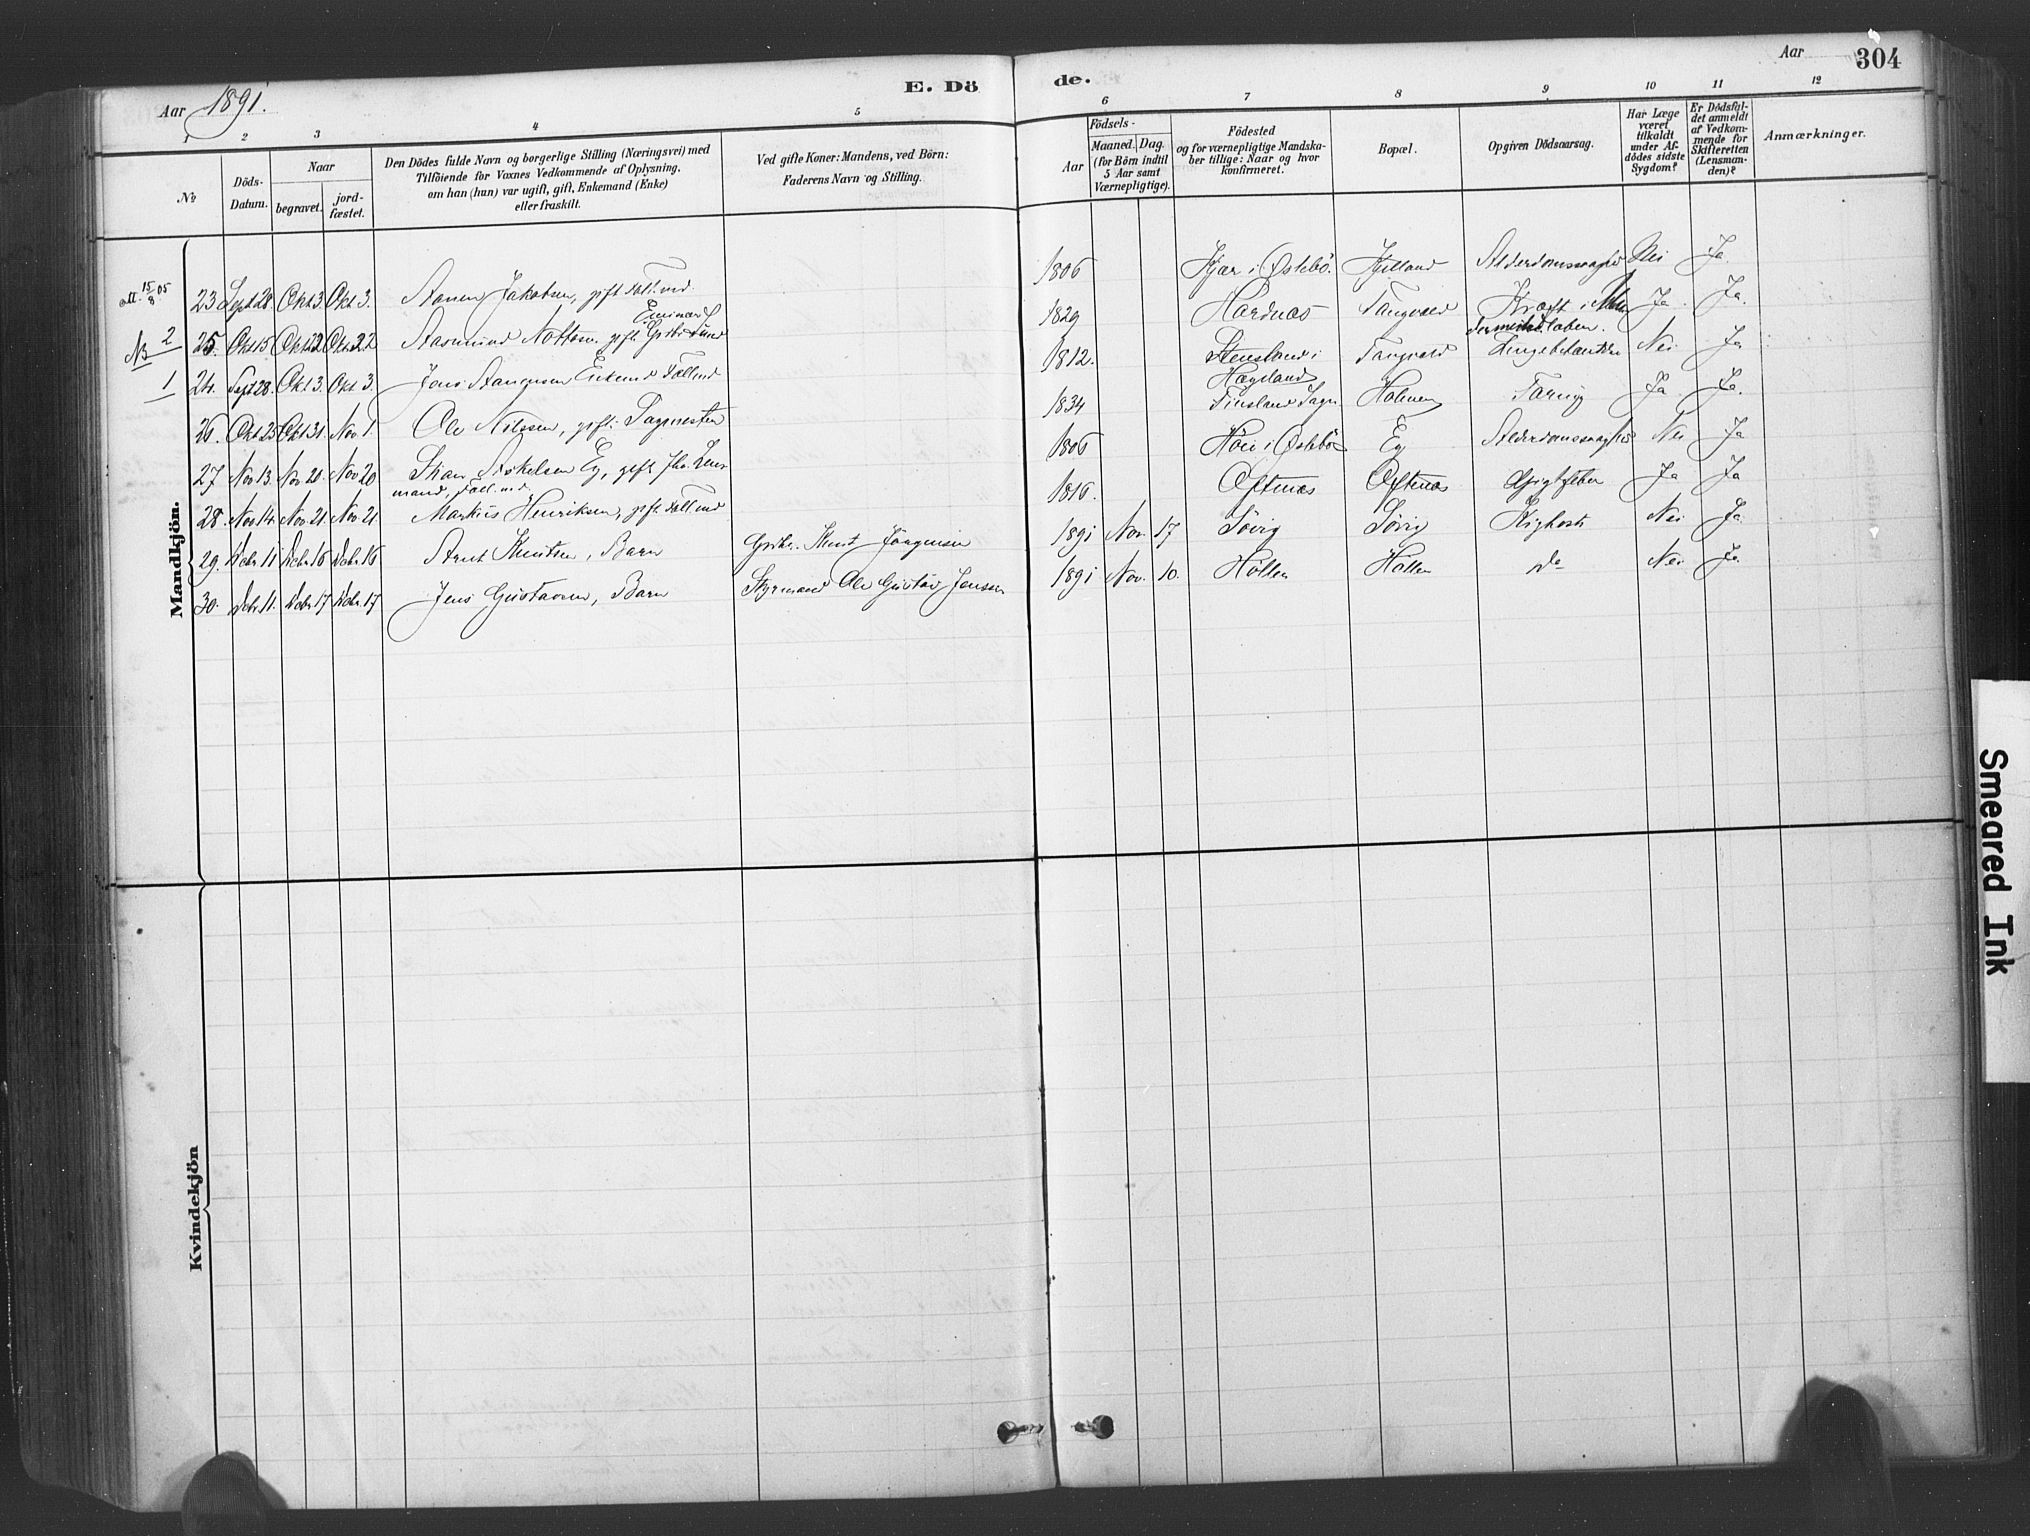 E. Döde.
Aar 1891.
Aar 304
1 2 3 4 5 6 7 8 9 10 11 12
No
Döds-Datum.
Naar
begravet.
jord-fæstet.
Den Dödes fulde Navn og borgerlige Stilling (Næringsvei) med
Tilföiende for Voxnes Vedkommende af Oplysning,
om han (hun) var ugift, gift, Enkemand (Enke)
eller fraskilt.
Ved gifte Koner: Mandens, ved Børn:
Faderens Navn og Stilling.
Födsels-
Aar
Maaned. Dag.
(for Börn indtil
5 Aar samt
Værnepligtige).
Födested
og for værnepligtige Mandska-
ber tillige: Naar og hvor
konfirmeret.
Bopæl.
Opgiven Dödsaarsag.
Har Læge
været
tilkaldt
under Af-
dödes sidste
Sygdom?
Er Dödsfal-
det anmeldt
af Vedkom-
mende for
Skifteretten
(Lensman-
den)?
Anmærkninger.
Mandkjön.
15/8 05
23 Sept 28. Okt 3. Okt 3. Aanen Jakobsen, gift Føll.md. 1806 Kjær i Østebö. Kjelland Alderdomssvaghed Nei Ja
NB 2
25. Okt 15 Okt 22 Okt 22 Aasmund gift 1829 Hordnæs Tangvald Kræft i Ja. Ja.
1
24. Sept 28. Okt 3. Okt 3. Jens Enkemd Føllmd 1812. Stensland i Hægeland Tangvald Nei Ja
26. Okt 25 Okt 31. Nov 1. Ole Nilssen, gift 1834 Finsland Sogn Holmen Tæring Ja Ja.
27 Nov 13. Nov 20. Nov 20 Eg, gift Lens-
mand, Føll.md. 1806 Höie i Østebö Eg Alderdomssvaghed Nei Ja
28. Nov 14. Nov. 21. Nov 21. Markus Henriksen, gift Føllmd 1816. Oftenæs Oftenæs Gigtfeber Ja Ja
29. Debr 11 Debr 16 Debr 16 Arnt Knutsen, Barn Knut Jörgensen 1891 Nov. 17 Søvig Søvig Kighoste Nei Ja
30. Debr 11. Debr 17 Debr. 17 Jens Gustavsen, Barn Styrmand Ole Gustav Jenssen 1891 Nov. 10. Holten Holten do Nei Ja
Kvindekjön
Smeared Ink